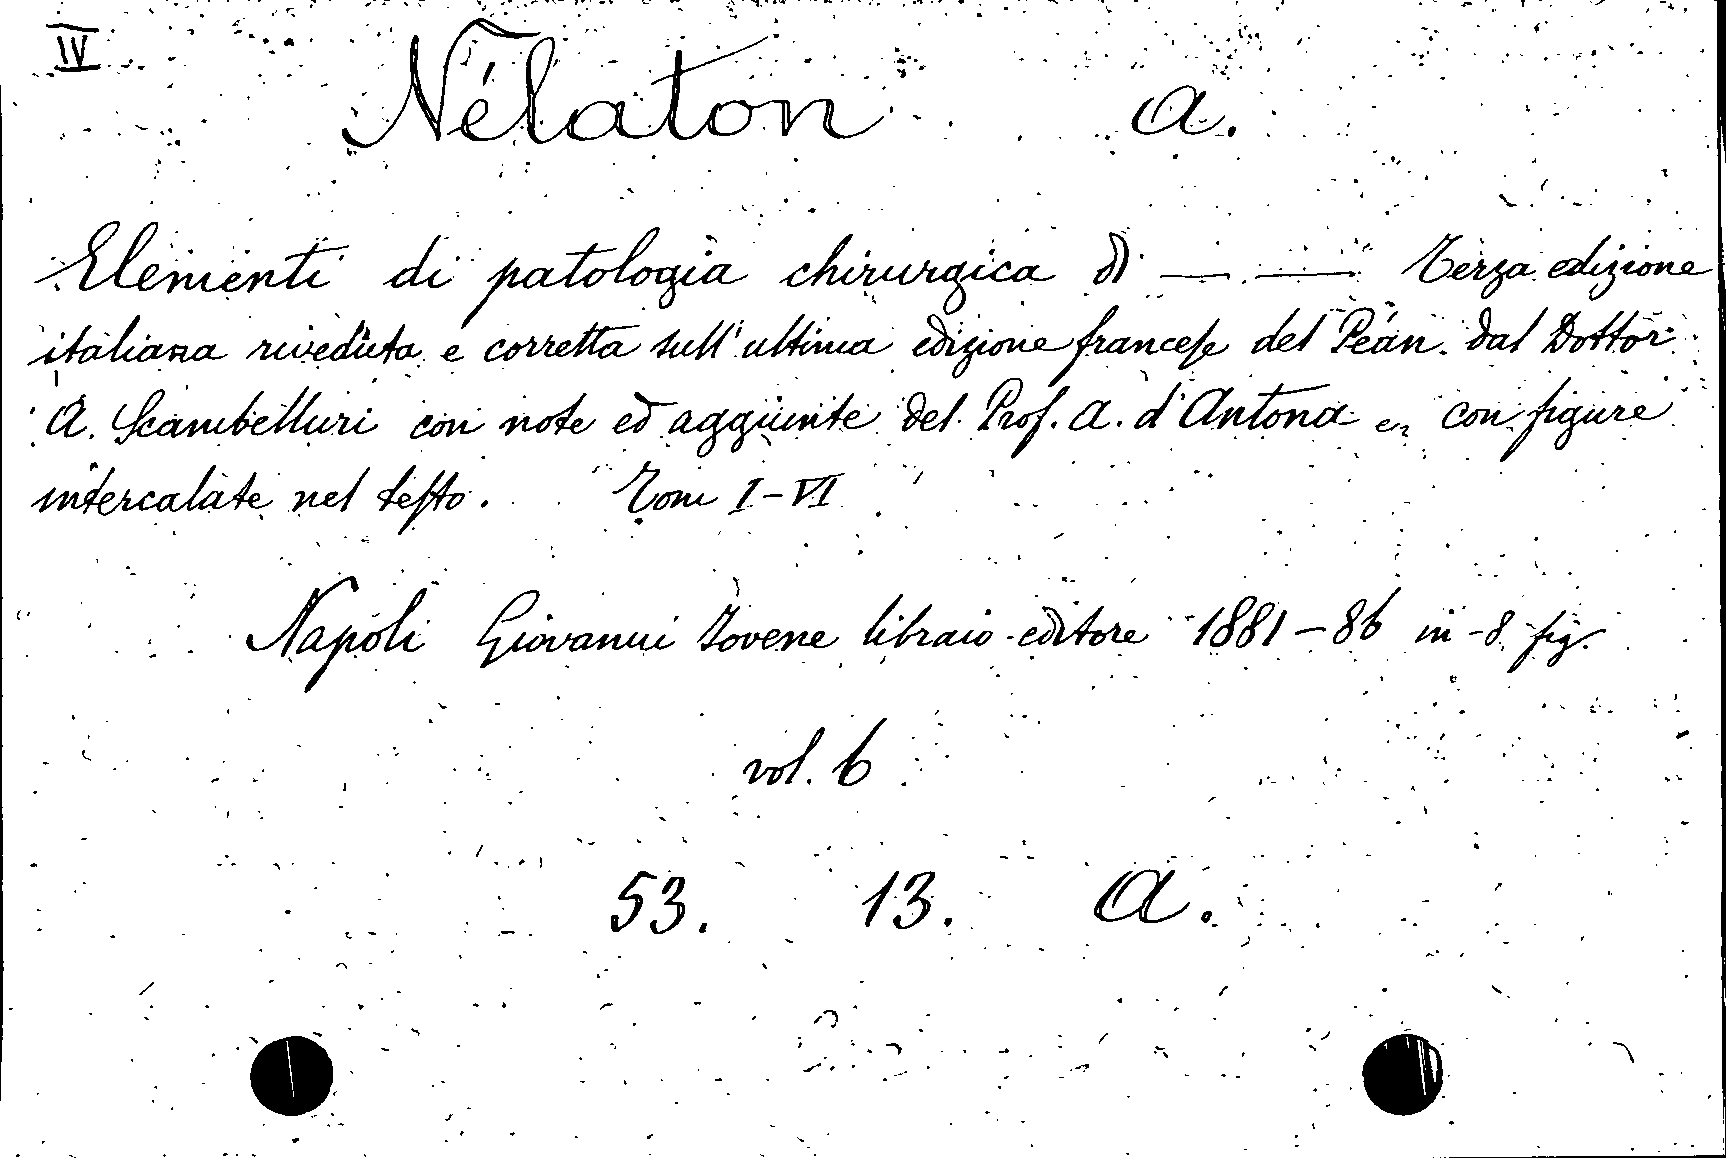 IV
Nélaton A.
Elementi di patologia chirurgica di — — Terza edizione
italiana riveduta e corretta sull'ultima edizione francese del Péan dal Dottor
A. Scambelluri con note ed aggiunte del Prof. A. d'Antona e con figure
intercalate nel testo. Tom I-VI
Napoli Giovanni Jovene libraio editore 1881-86 in-8 fig.
vol. 6
53. 13. A.